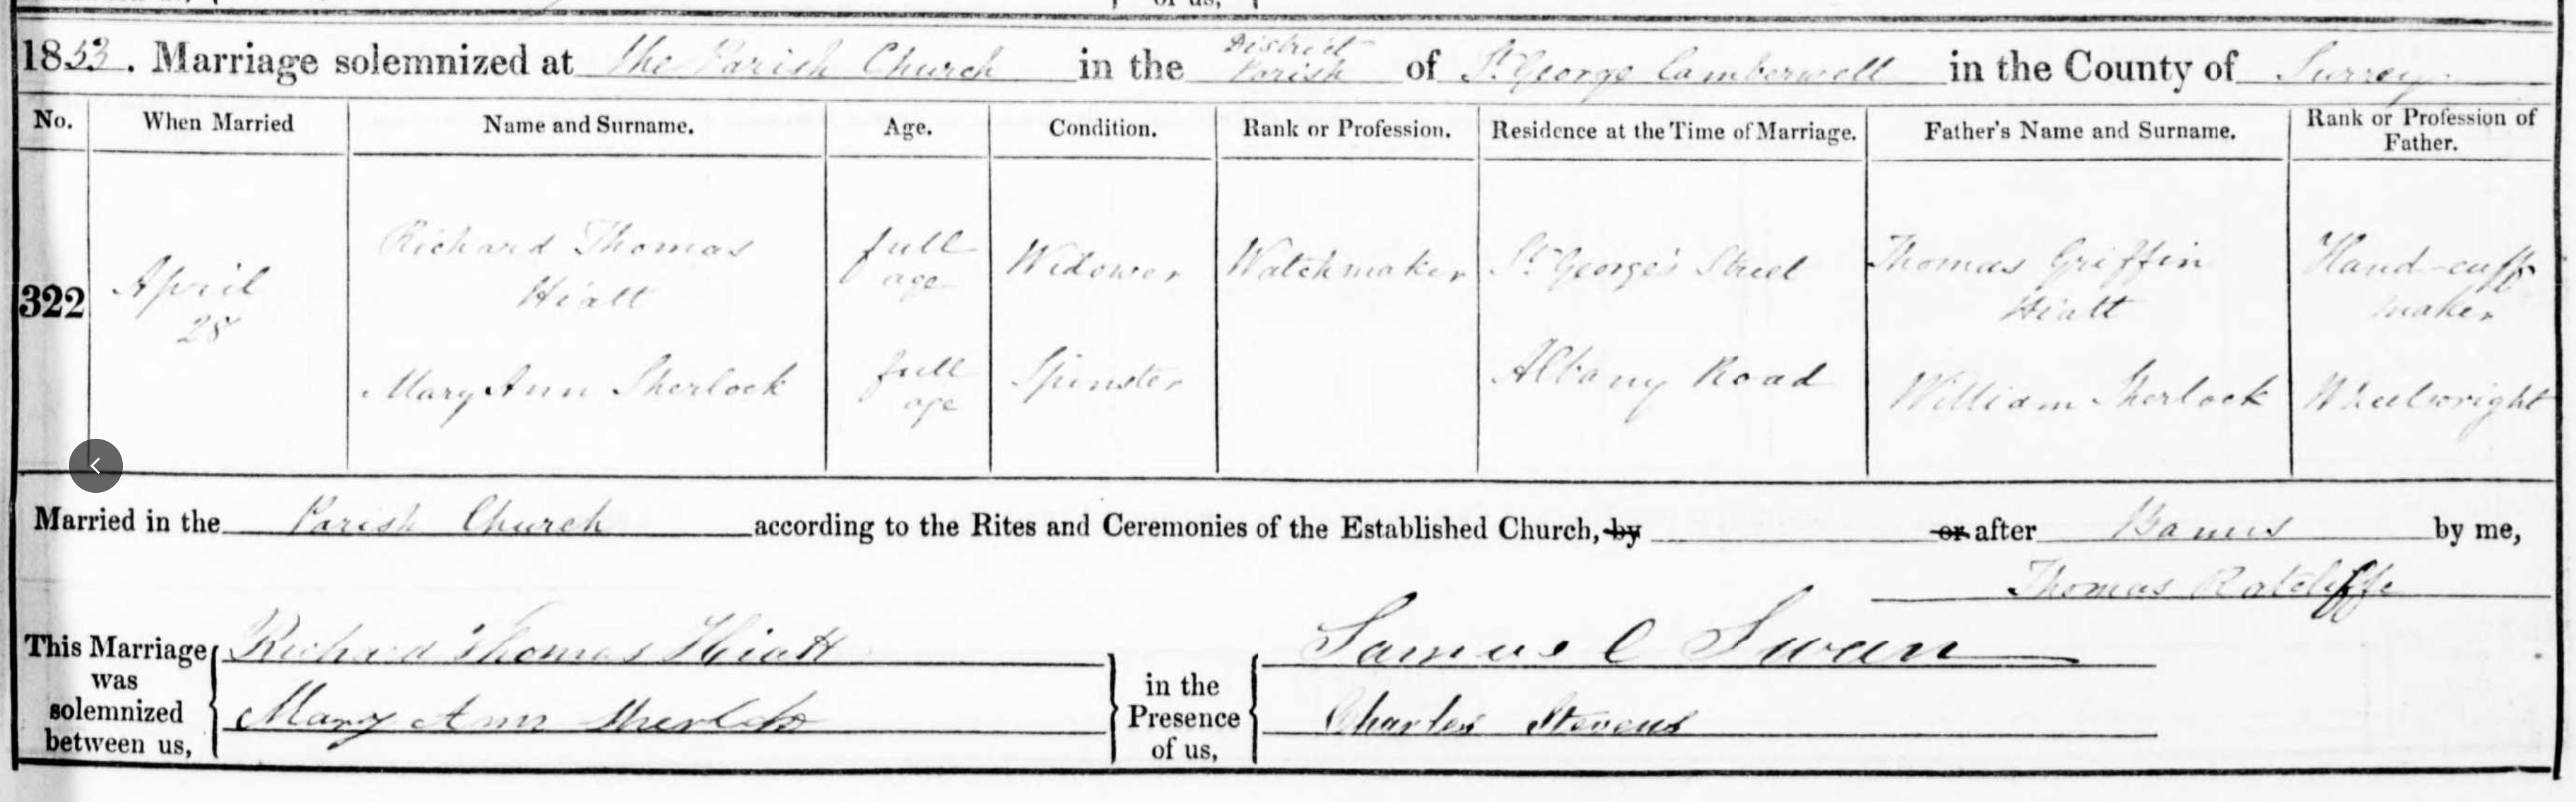 of us,
1853. Marriage solemnized at the Parish Church in the District Parish of St. George Camberwell in the County of Surrey
No. When Married Name and Surname. Age. Condition. Rank or Profession. Residence at the Time of Marriage. Father's Name and Surname. Rank or Profession of Father.
322 April 28 Richard Thomas Hiatt full age Widower Watchmaker St. George's Street Thomas Griffin Hiatt Hand-cuff maker
Mary Ann Sherlock full age Spinster Albany Road William Sherlock Wheelwright
Married in the Parish Church according to the Rites and Ceremonies of the Established Church, by or after Banns by me,
Thomas Ratcliffe
This Marriage was solemnized between us, Richard Thomas Hiatt in the Presence of us, Samuel Swan
Mary Ann Sherlock Charles Stevens